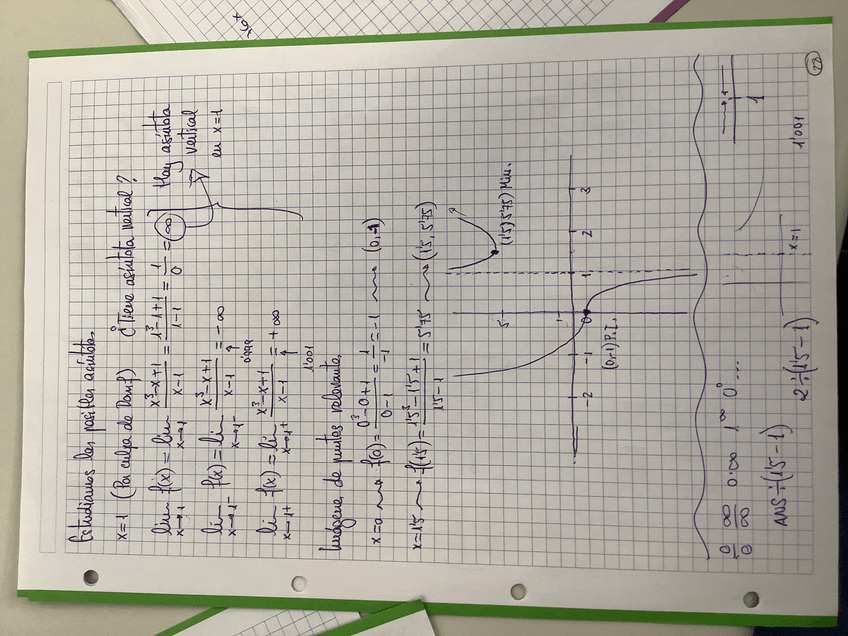 Estudiamos las posibles asíntotas.
x=1 (Por culpa de Domf) ¿Tiene asíntota vertical?
lim x→1 f(x) = lim x→1 x³-x+1/x-1 = 1³-1+1/1-1 = 1/0 = ∞
Hay asíntota
vertical
en x=1
lim x→1⁻ f(x) = lim x→1⁻ x³-x+1/x-1 = -∞
0'999
lim x→1⁺ f(x) = lim x→1⁺ x³-x+1/x-1 = +∞
1'001
Imágenes de puntos relevantes.
x=0 ⇝ f(0) = 0³-0+1/0-1 = 1/-1 = -1 ⇝ (0,-1)
x=1'5 ⇝ f(1'5) = 1'5³-1'5+1/1'5-1 = 5'75 ⇝ (1'5, 5'75)
(1'5, 5'75) Min.
5
1
-2 -1 0 1 2 3
(0,-1) P.I.
0/0 ∞/∞ 0·∞ 1^∞ 0⁰ ...
x=1
1
ANS÷(1'5-1)
2÷(1'5-1)
1'001
28